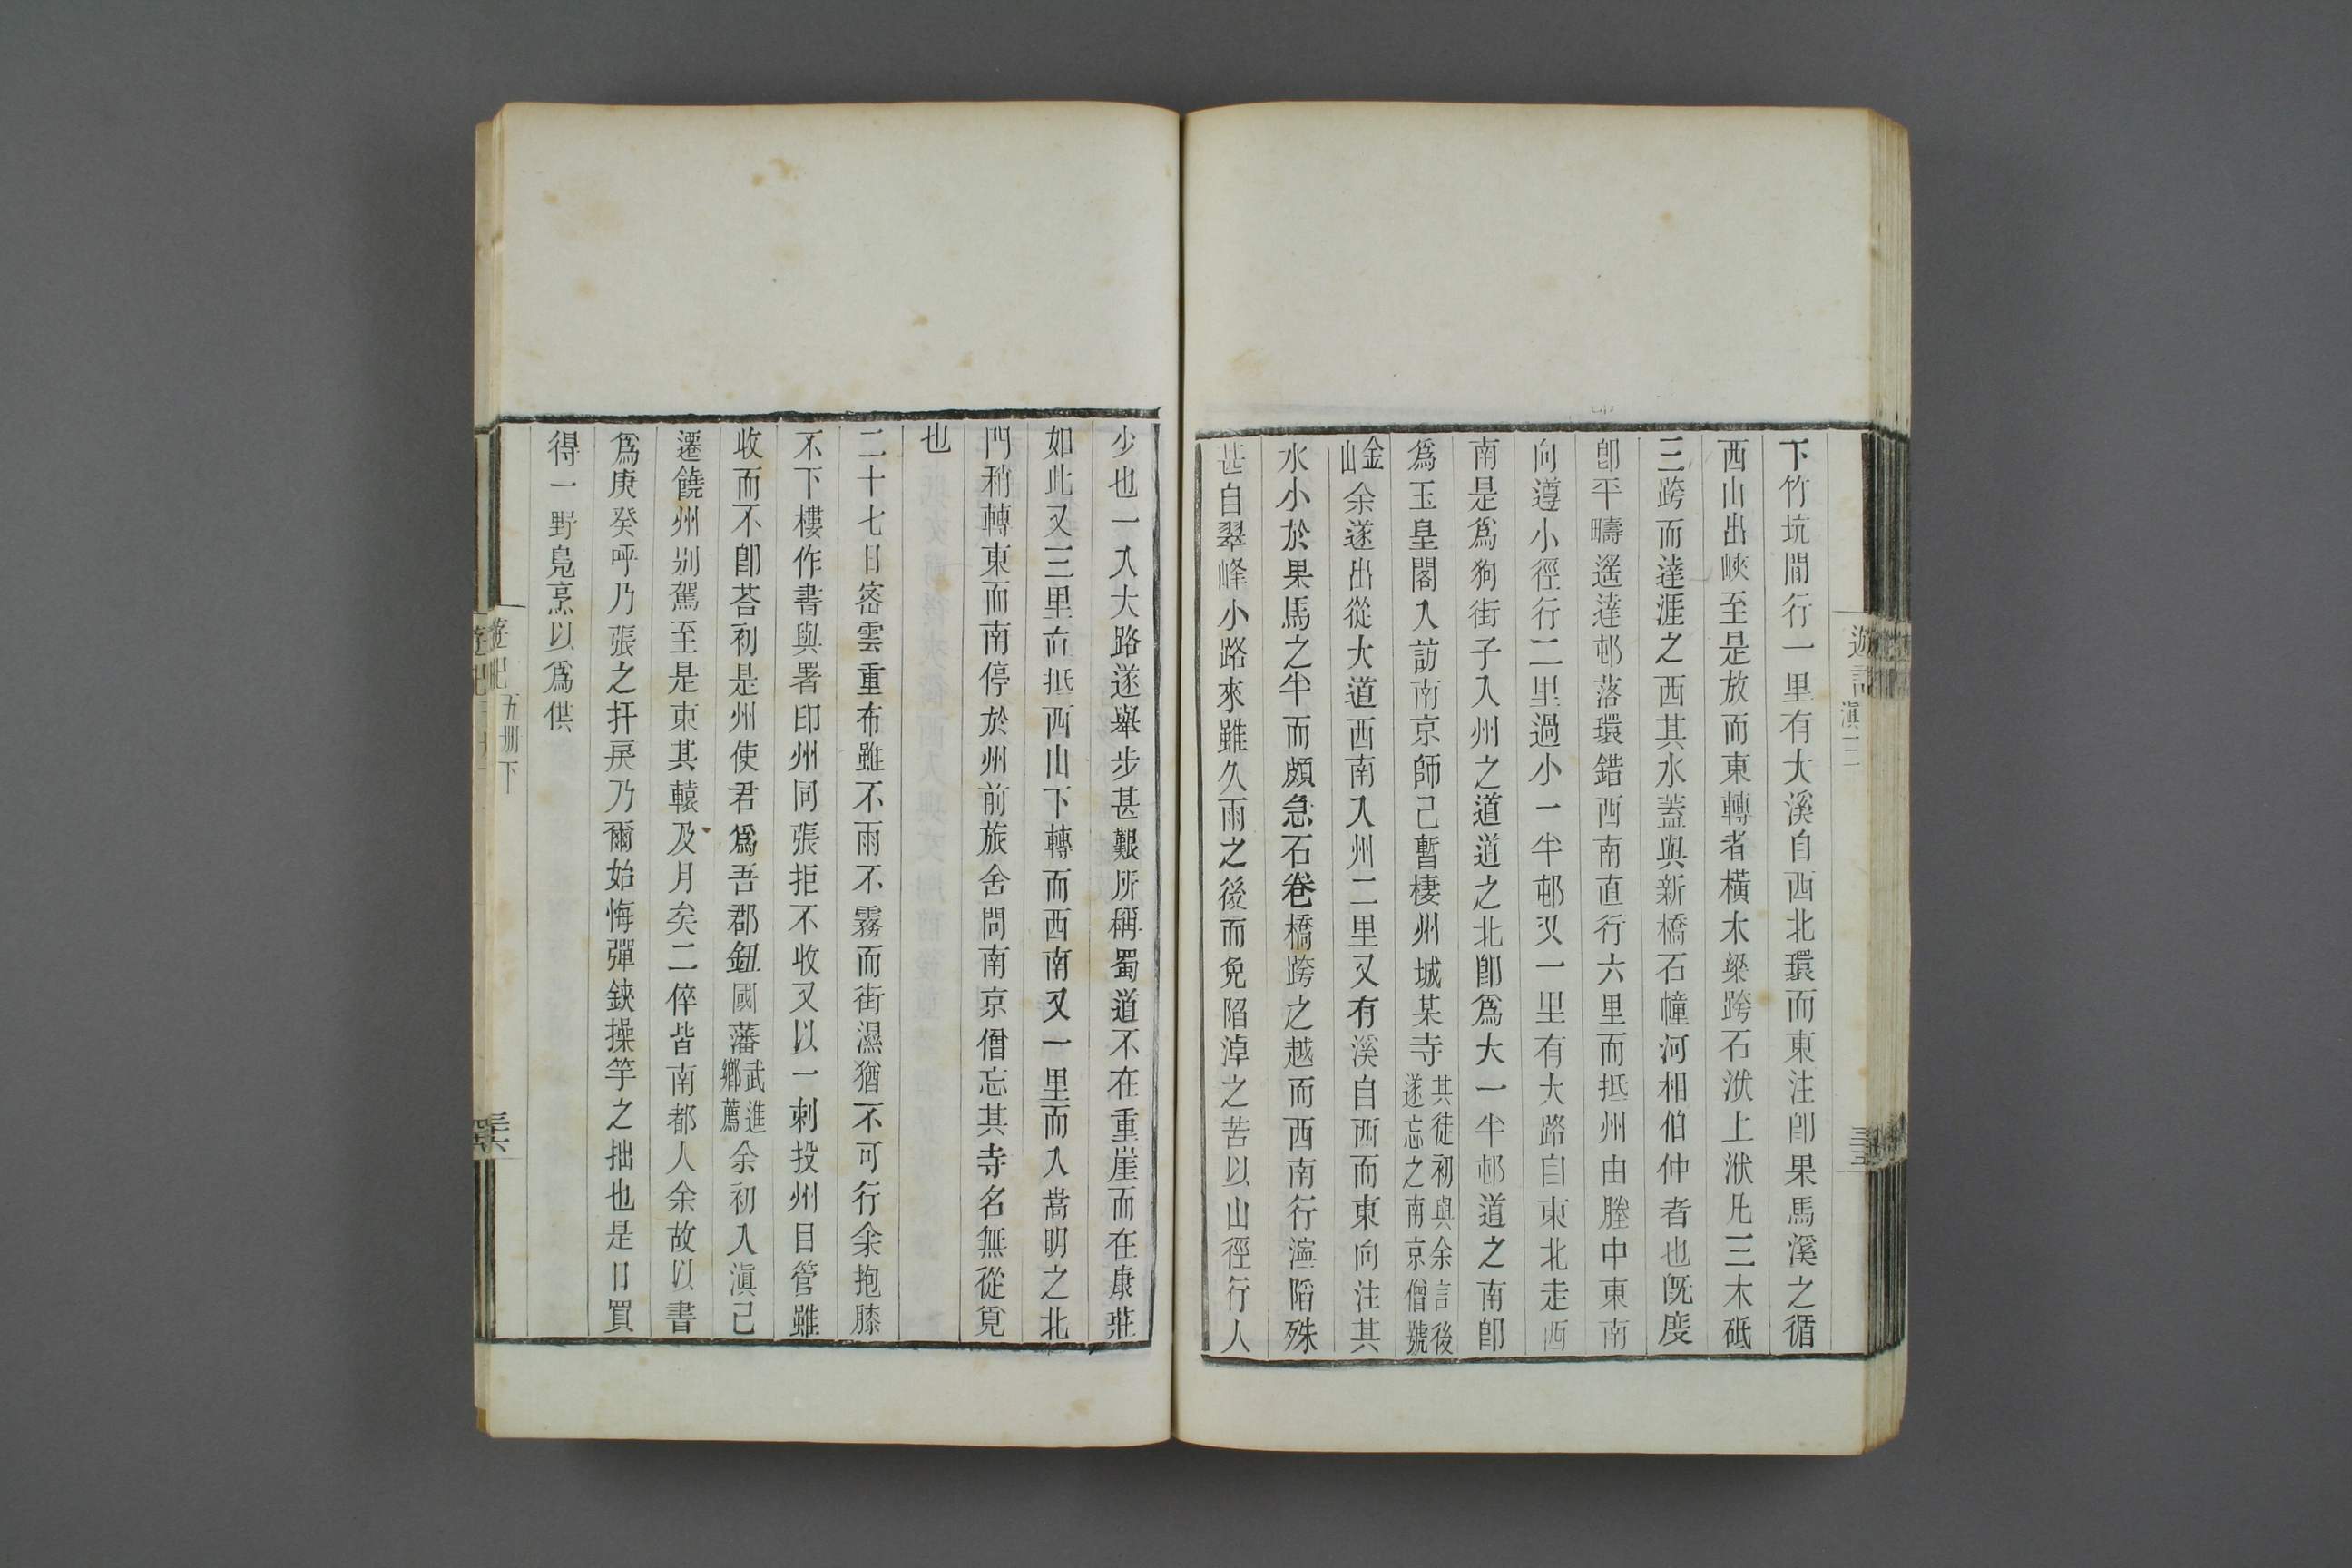 遊記 滇三
下竹坑間行一里有大溪自西北環而東注卽果馬溪之循
西山出峽至是放而東轉者橫木梁跨石洑上洑凡三木砥
三跨而達涯之西其水蓋與新橋石幢河相伯仲者也旣度
卽平疇遙達邨落環錯西南直行六里而抵州由塍中東南
向遵小徑行二里過小一半邨又一里有大路自東北走西
南是爲狗街子入州之道道之北卽爲大一半邨道之南卽
爲玉皇閣入訪南京師已暫棲州城某寺其徒初與余言後遂忘之南京僧號
金山余遂出從大道西南入州二里又有溪自西而東向注其
水小於果馬之半而頗急石卷橋跨之越而西南行濘陷殊
甚自翠峰小路來雖久雨之後而免陷淖之苦以山徑行人
少也一入大路遂舉步甚艱所稱蜀道不在重崖而在康莊
如此又三里直抵西山下轉而西南又一里而入嵩明之北
門稍轉東而南停於州前旅舍問南京僧忘其寺名無從覓
也
二十七日密雲重布雖不雨不霧而街濕猶不可行余抱膝
不下樓作書與署印州同張拒不收又以一刺投州目管雖
收而不卽荅初是州使君爲吾郡鈕國藩武進鄉薦余初入滇已
遷饒州別駕至是東其轅及月矣二倅皆南都人余故以書
爲庚癸呼乃張之扞戾乃爾始悔彈鋏操竽之拙也是日買
得一野鳧烹以爲供
遊記 五册下
三十六